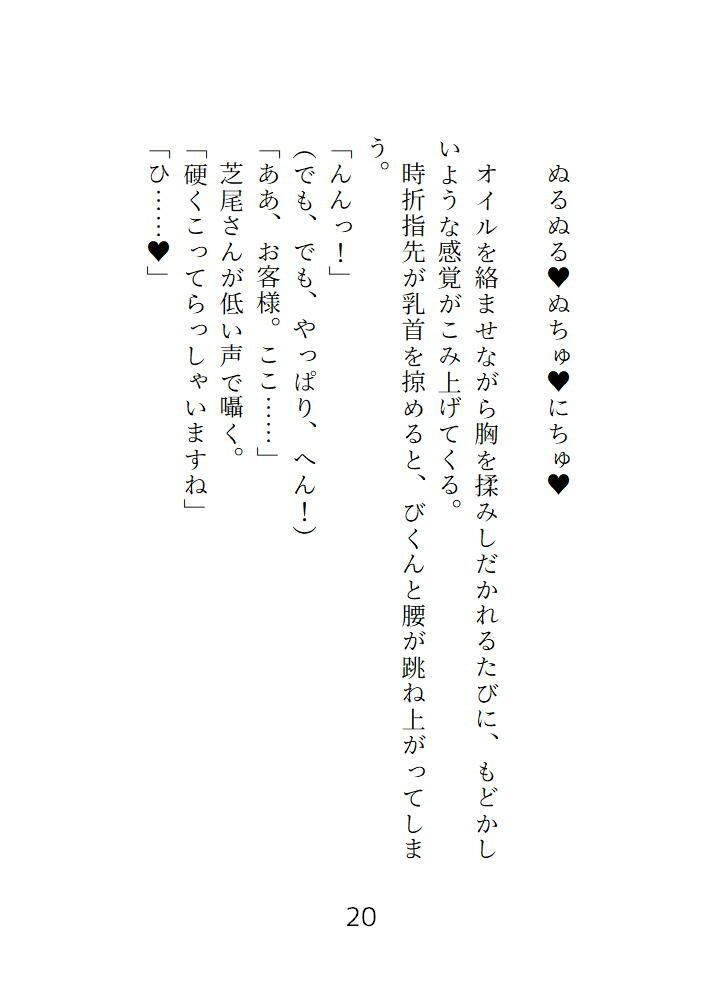 ぬるぬる♥ぬちゅ♥にちゅ♥
オイルを絡ませながら胸を揉みしだかれるたびに、もどかし
いような感覚がこみ上げてくる。
時折指先が乳首を掠めると、びくんと腰が跳ね上がってしま
う。
「んんっ！」
（でも、でも、やっぱり、へん！）
「ああ、お客様。ここ……」
芝尾さんが低い声で囁く。
「硬くこってらっしゃいますね」
「ひ……♥」
20